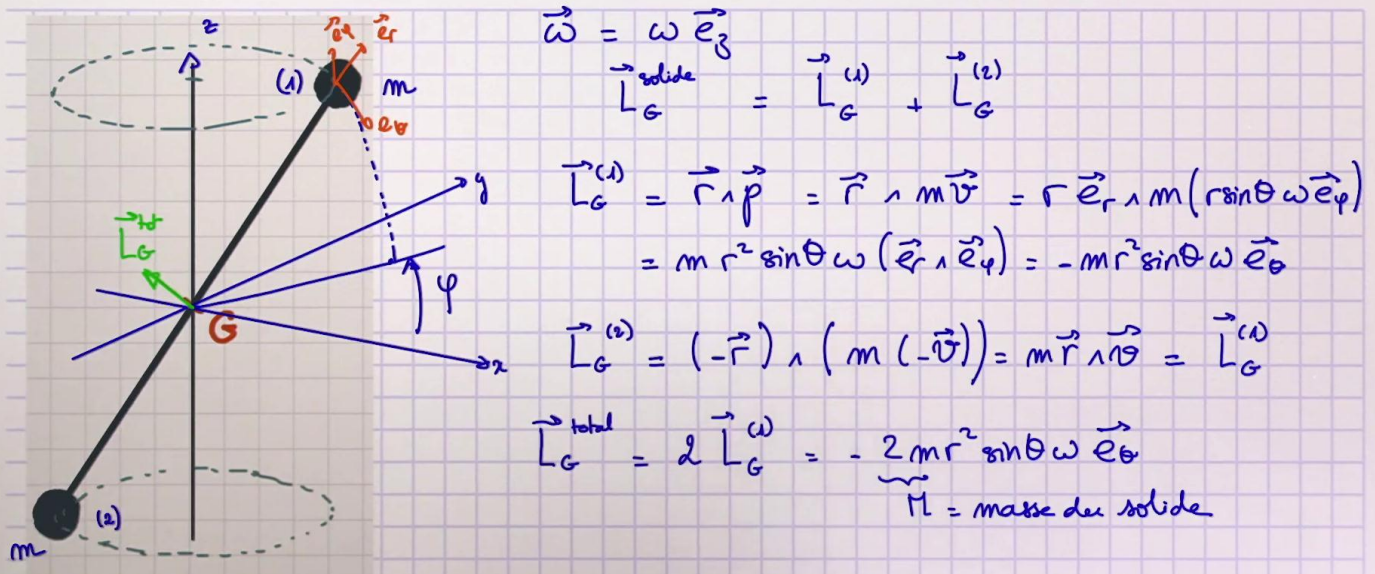 z
e⃗φ e⃗r
(1) m
e⃗θ
y
L⃗G^tot
φ
G
x
(2)
m
ω⃗ = ω e⃗z
L⃗G^solide = L⃗G^(1) + L⃗G^(2)
L⃗G^(1) = r⃗ ∧ p⃗ = r⃗ ∧ m v⃗ = r e⃗r ∧ m(r sinθ ω e⃗φ)
= m r² sinθ ω (e⃗r ∧ e⃗φ) = - m r² sinθ ω e⃗θ
L⃗G^(2) = (-r⃗) ∧ (m (-v⃗)) = m r⃗ ∧ v⃗ = L⃗G^(1)
L⃗G^total = 2 L⃗G^(1) = - 2 m r² sinθ ω e⃗θ
M = masse du solide